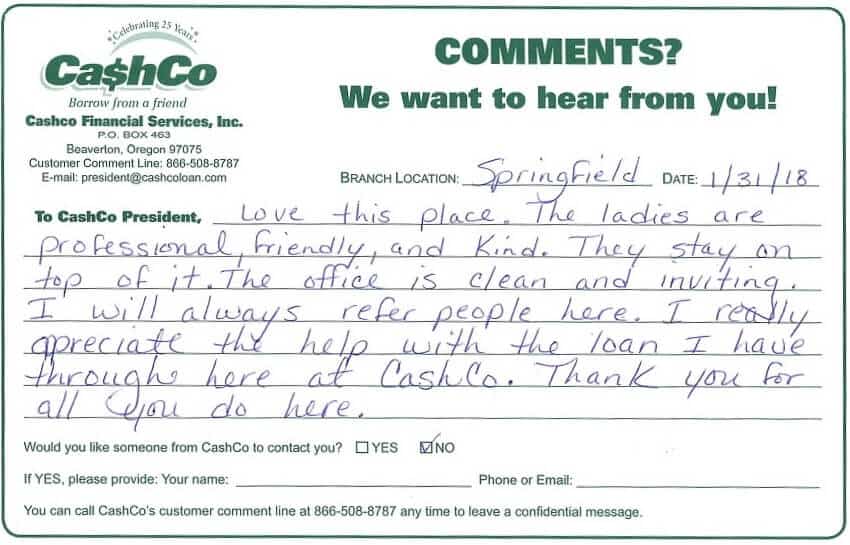 Celebrating 25 Years
Ca$hCo
Borrow from a friend
Cashco Financial Services, Inc.
P.O. BOX 463
Beaverton, Oregon 97075
Customer Comment Line: 866-508-8787
E-mail: president@cashcoloan.com
COMMENTS?
We want to hear from you!
BRANCH LOCATION: Springfield DATE: 1/31/18
To CashCo President, Love this place. The ladies are
professional, friendly, and kind. They stay on
top of it. The office is clean and inviting.
I will always refer people here. I really
appreciate the help with the loan I have
through here at CashCo. Thank you for
all you do here.
Would you like someone from CashCo to contact you? ☐ YES ☑ NO
If YES, please provide: Your name: Phone or Email:
You can call CashCo's customer comment line at 866-508-8787 any time to leave a confidential message.